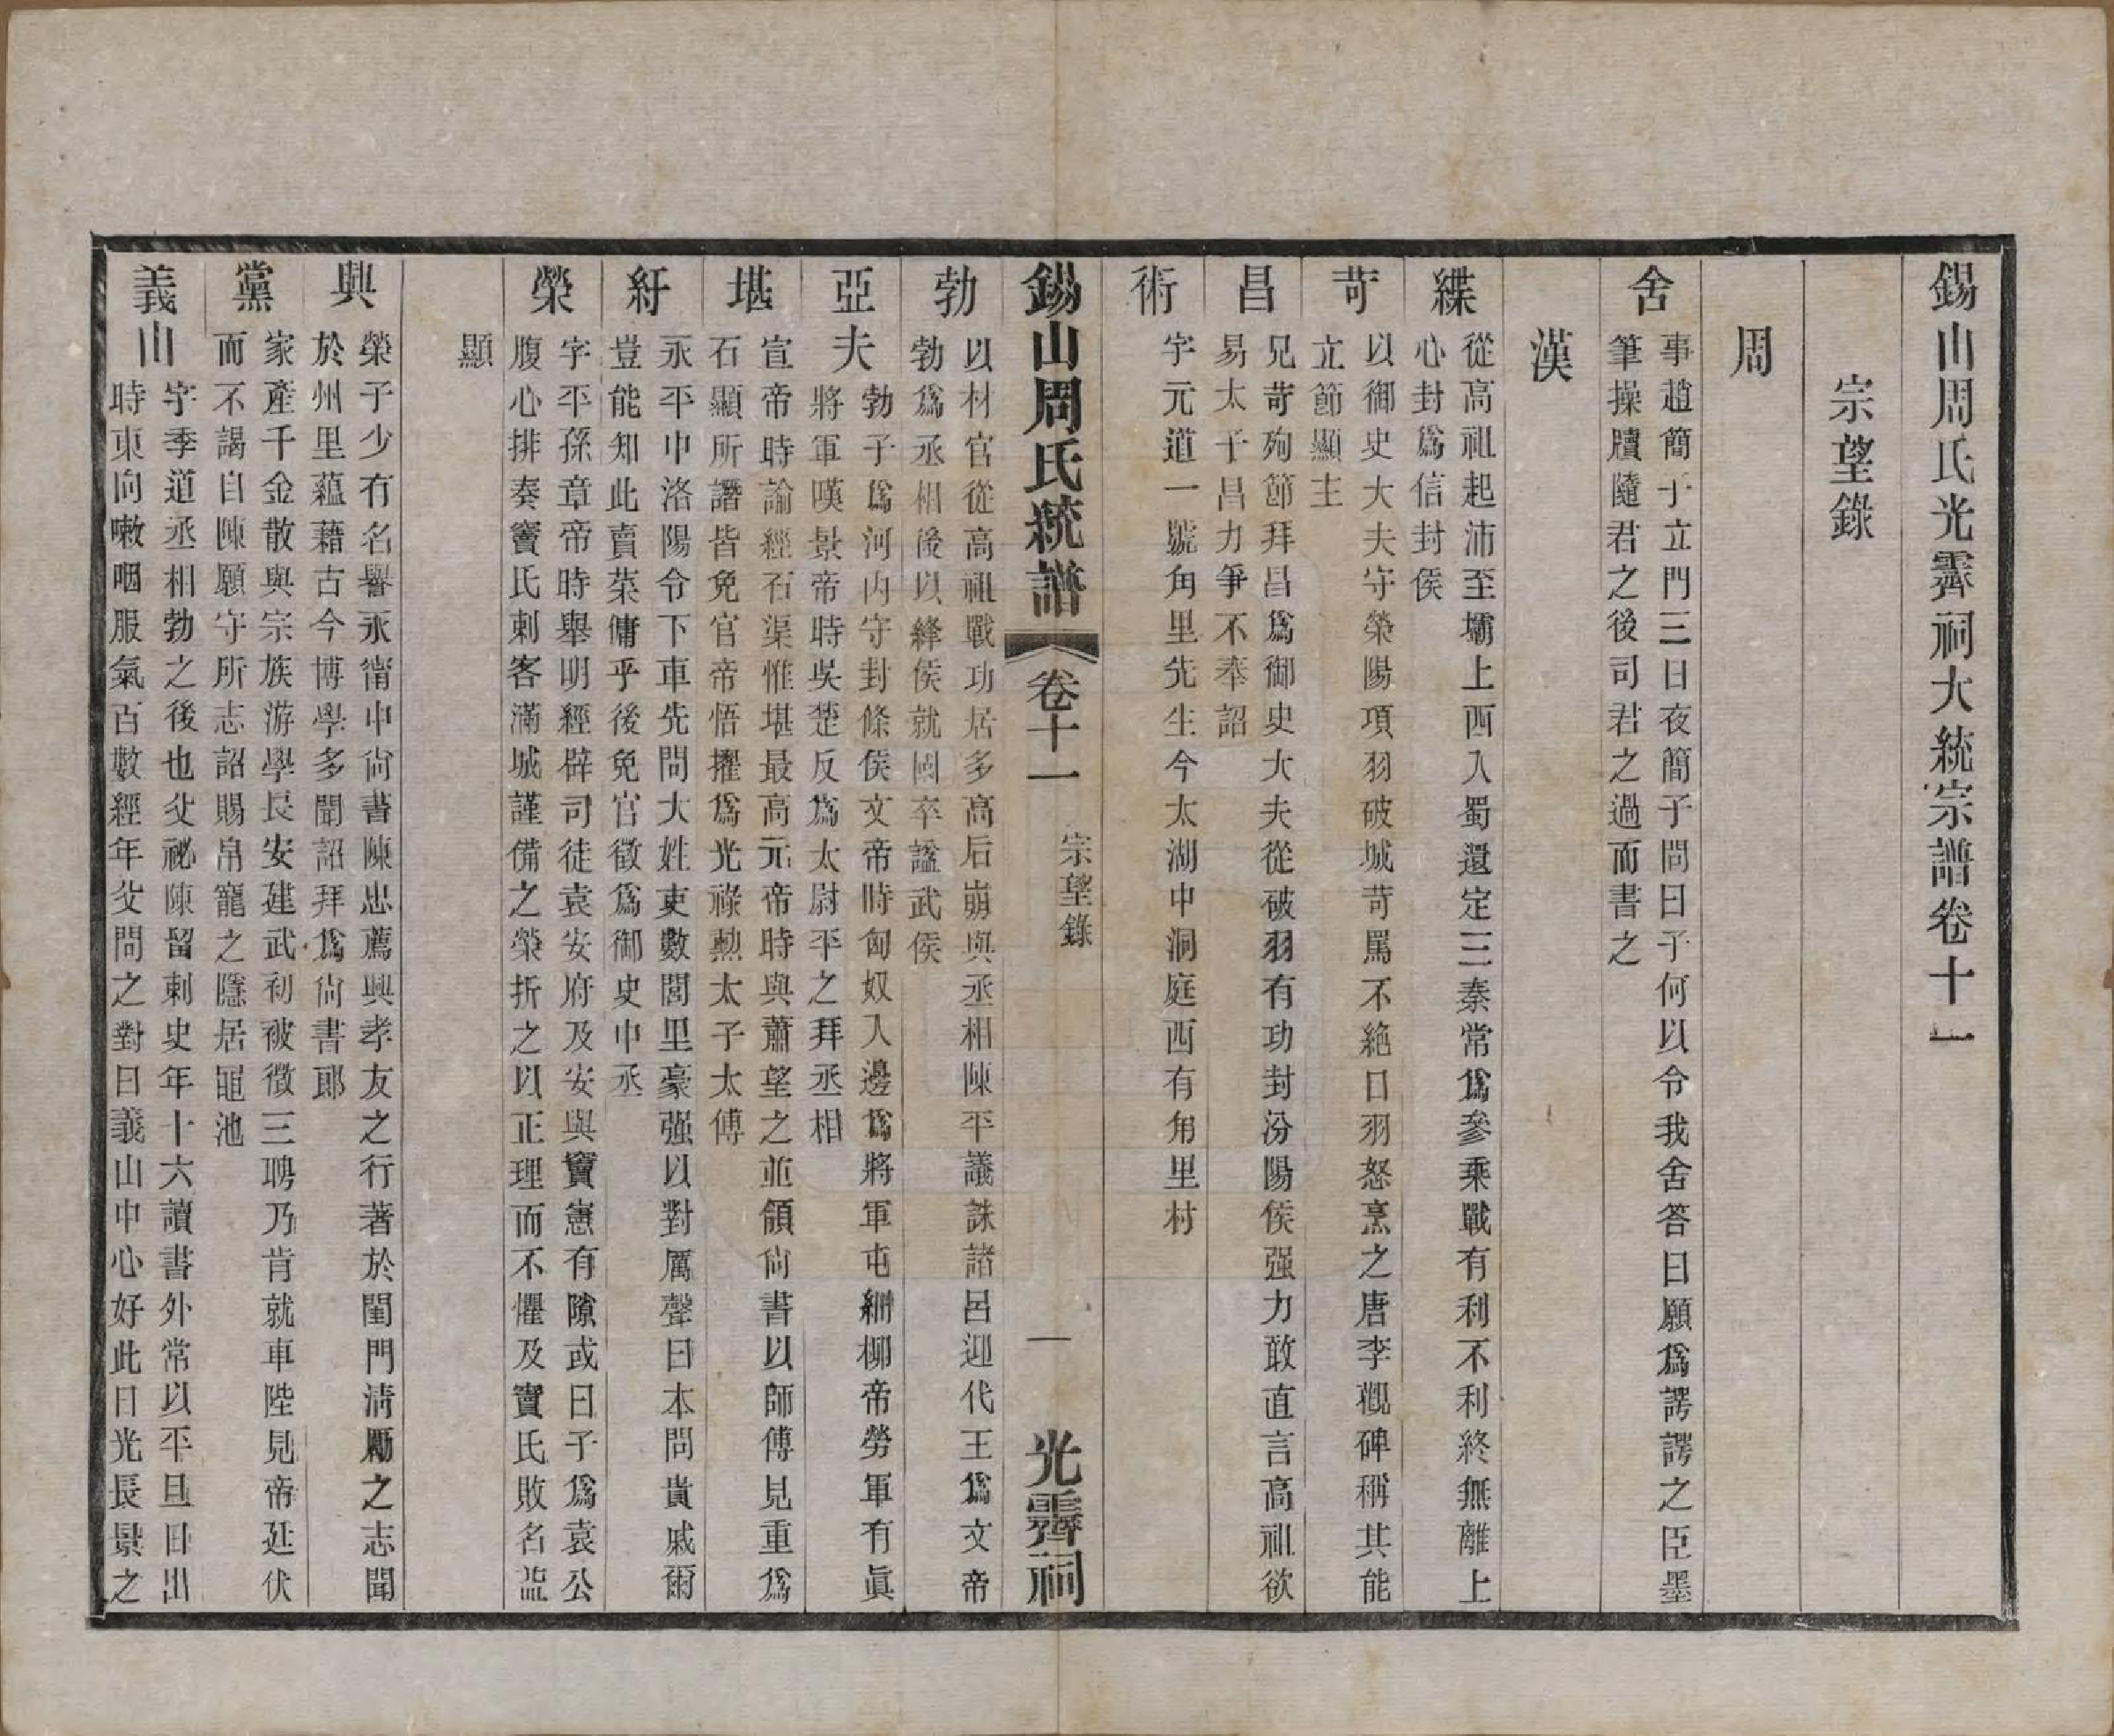 錫山周氏光霽祠大統宗譜卷十一
宗望錄
周
舍
事趙簡子立門三日夜簡子問曰子何以令我舍答曰願爲諤諤之臣墨
筆操牘隨君之後司君之過而書之
漢
緤
從高祖起沛至壩上西入蜀還定三秦常爲參乘戰有利不利終無離上
心封爲信封侯
苛
以御史大夫守榮陽項羽破城苛罵不絶口羽怒烹之唐李觀碑稱其能
立節顯主
昌
兄苛殉節拜昌爲御史大夫從破羽有功封汾陽侯强力敢直言高祖欲
易太子昌力爭不奉詔
術
字元道一號角里先生今太湖中洞庭西有角里村
錫山周氏統譜
卷十一
宗望錄
一
光霽祠
勃
以材官從高祖戰功居多高后崩與丞相陳平議誅諸呂迎代王爲文帝
勃爲丞相後以絳侯就國卒諡武侯
亞夫
勃子爲河内守封條侯文帝時匈奴入邊爲將軍屯細柳帝勞軍有眞
將軍嘆景帝時吳楚反爲太尉平之拜丞相
堪
宣帝時論經石渠惟堪最高元帝時與蕭望之並領尙書以師傅見重爲
石顯所譖皆免官帝悟擢爲光祿勲太子太傅
紆
永平中洛陽令下車先問大姓吏數閭里豪强以對厲聲曰本問貴戚爾
豈能知此賣菜傭乎後免官徵爲御史中丞
榮
字平孫章帝時舉明經辟司徒袁安府及安與竇憲有隙或曰子爲袁公
腹心排奏竇氏刺客滿城謹備之榮折之以正理而不懼及竇氏敗名益
顯
興
榮子少有名譽永甯中尙書陳忠薦興孝友之行著於閨門淸勵之志聞
於州里蘊藉古今博學多聞詔拜爲尙書郞
黨
家產千金散與宗族游學長安建武初被徵三聘乃肯就車陛見帝延伏
而不謁自陳願守所志詔賜帛寵之隱居黽池
義山
字季道丞相勃之後也父祕陳留刺史年十六讀書外常以平旦日出
時東向嗽咽服氣百數經年父問之對曰義山中心好此日光長景之